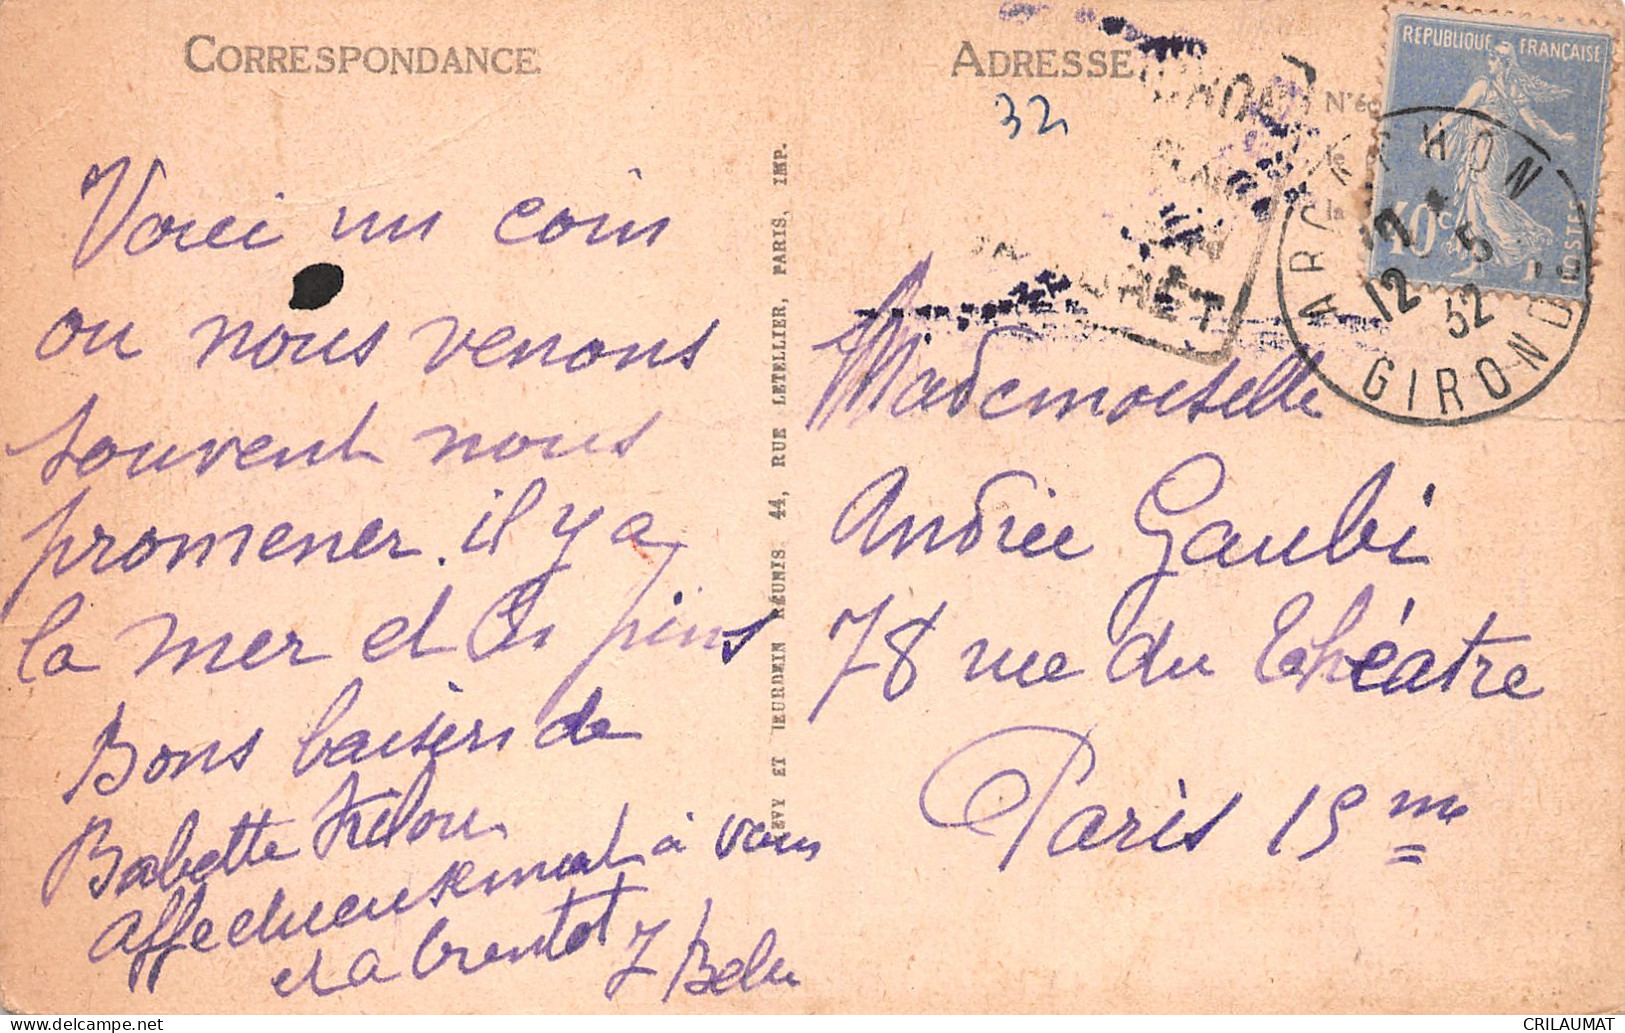 CORRESPONDANCE
Voici un coin
ou nous venons
souvent nous
promener. il y a
la mer et les pins
Bons baisers de
Babette
affectueusement à vous
et a brentot
ADRESSE
32
RÉPUBLIQUE FRANÇAISE
40c
POSTES
ARCACHON
12
5
32
GIRONDE
Mademoiselle
Andrée Gaubi
78 rue du théatre
Paris 15me
LEVY ET NEURDEIN RÉUNIS 44, RUE LETELLIER, PARIS. IMP.
CRILAUMAT